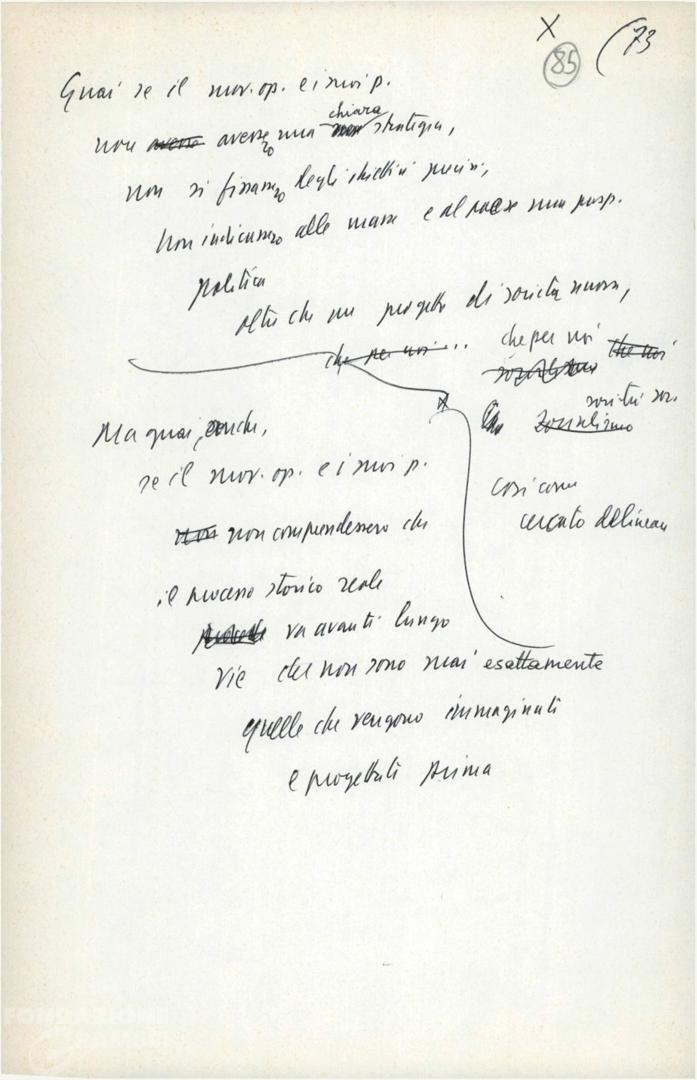 X
85
(73
Guai se il mov. op. e i suoi p.
non avesse avessero una chiara strategia,
non si fissassero degli obiettivi precisi,
non indicassero alle masse e al paese una prosp.
politica
oltre che un progetto di società nuova,
che per noi... che per noi che noi
socialismo
società soc.
socialismo
così come
cercato delinear
Ma guai, anche,
se il mov. op. e i suoi p.
non non comprendessero che
il processo storico reale
procede va avanti lungo
vie che non sono mai esattamente
quelle che vengono immaginati
e progettati prima
FONDAZIONE
GRAMSCI